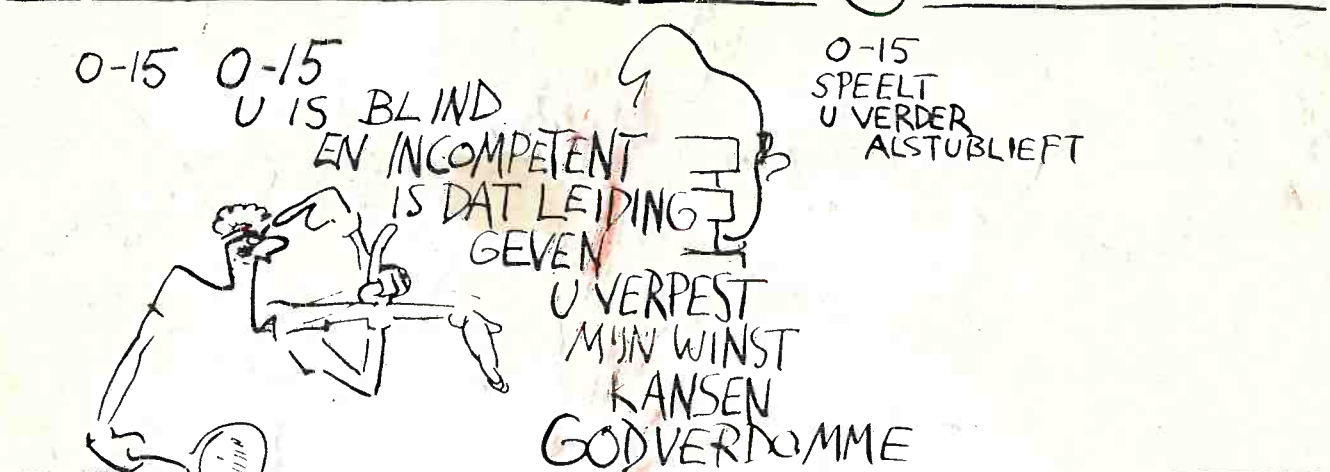 0-15 0-15
U IS BLIND
EN INCOMPETENT
IS DAT LEIDING
GEVEN
U VERPEST
MIJN WINST
KANSEN
GODVERDOMME
0-15
SPEELT
U VERDER
ALSTUBLIEFT